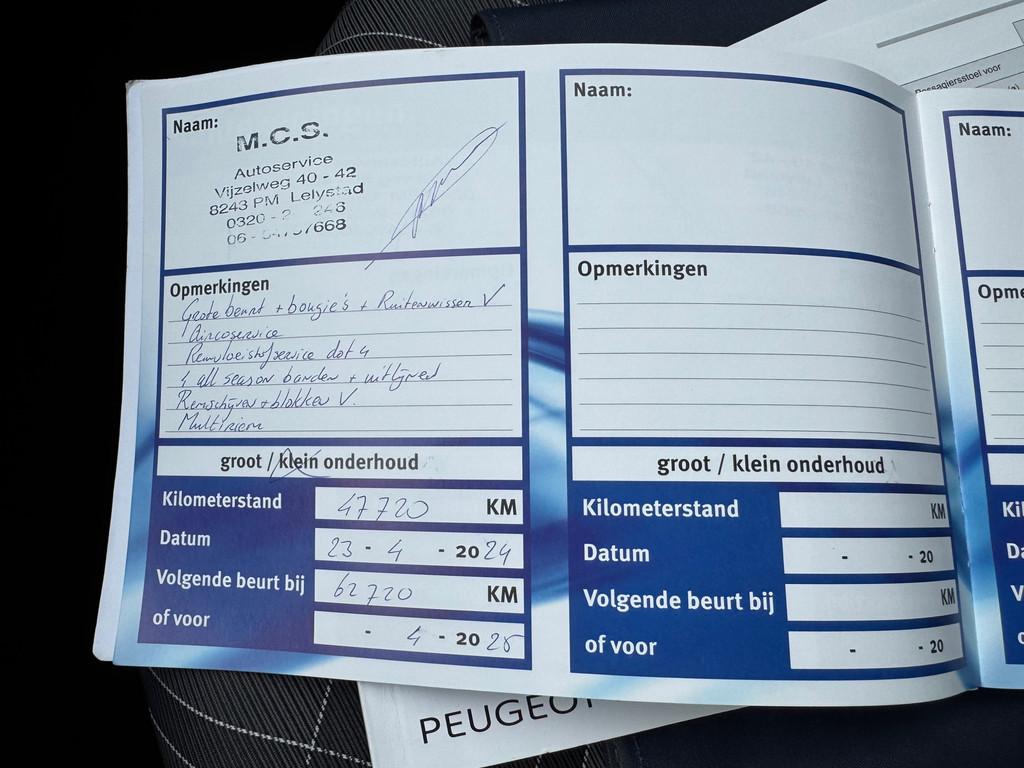 Naam:
M.C.S.
Autoservice
Vijzelweg 40 - 42
8243 PM Lelystad
0320 - 2 246
06 - 7668
Opmerkingen
Grote beurt + bougie's + Ruitenwissen V
Aircoservice
Remvloeistofservice dot 4
4 all season banden + uitlijnen
Remschijven + blokken V.
Multiriem
groot / klein onderhoud
Kilometerstand 47720 KM
Datum 23 - 4 - 20 24
Volgende beurt bij 62720 KM
of voor - 4 - 20 25
Naam:
Opmerkingen
groot / klein onderhoud
Kilometerstand KM
Datum - - 20
Volgende beurt bij KM
of voor - - 20
Naam:
Opme
Ki
Da
V
o
Passagiersstoel voor
PEUGEOT